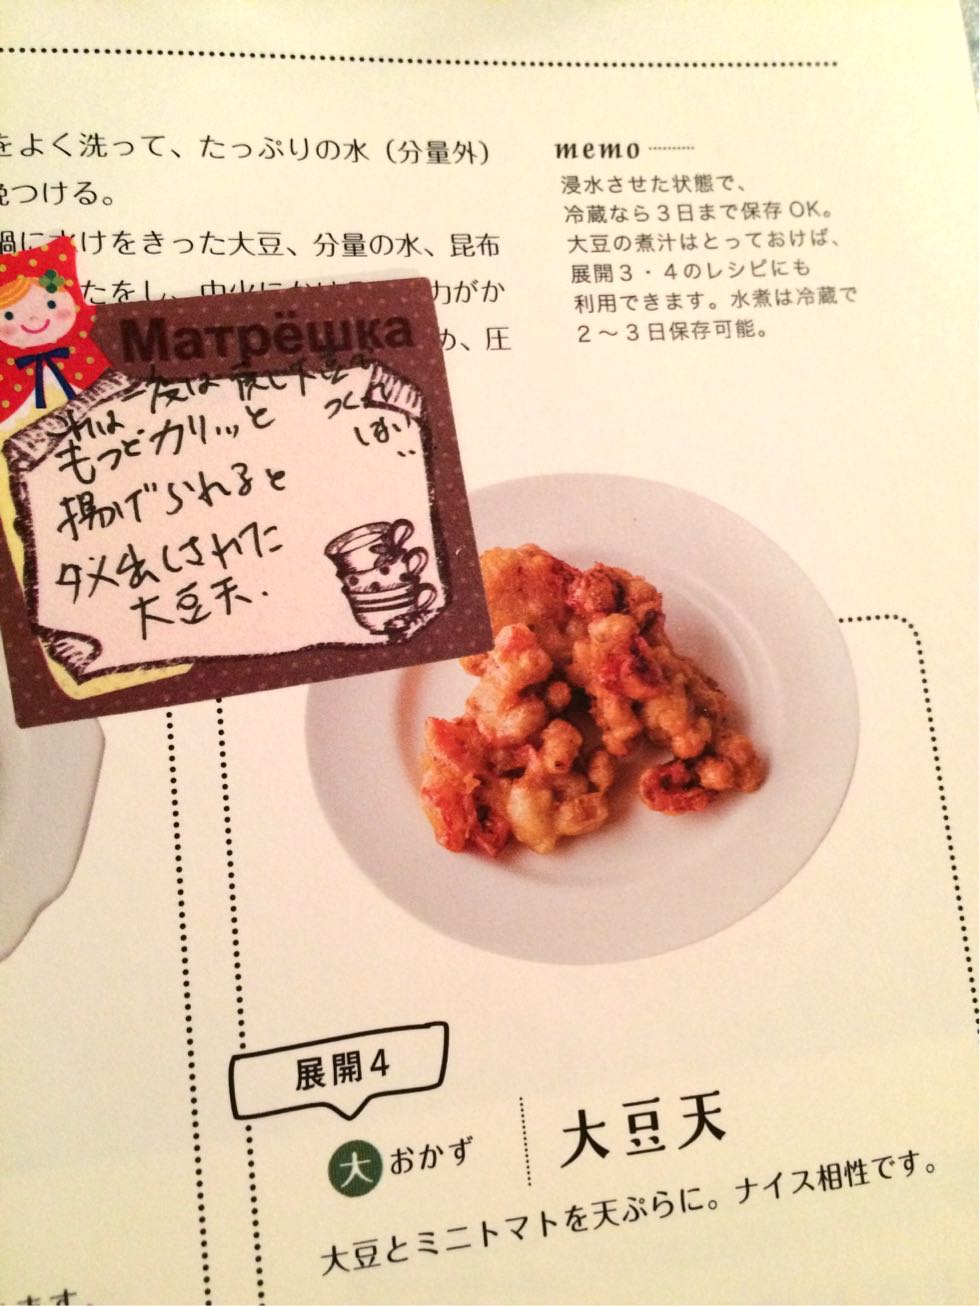 をよく洗って、たっぷりの水（分量外）
晩つける。
鍋に水けをきった大豆、分量の水、昆布
たをし、中火にかける
力がか
め、圧
memo
浸水させた状態で、
冷蔵なら3日まで保存OK。
大豆の煮汁はとっておけば、
展開3・4のレシピにも
利用できます。水煮は冷蔵で
2〜3日保存可能。
Матрёшка
これは一度は戻し大豆で
つくん
ほい
もっとカリッと
揚げられると
ダメ出しされた
大豆天.
展開4
大 おかず
大豆天
大豆とミニトマトを天ぷらに。ナイス相性です。
ます。